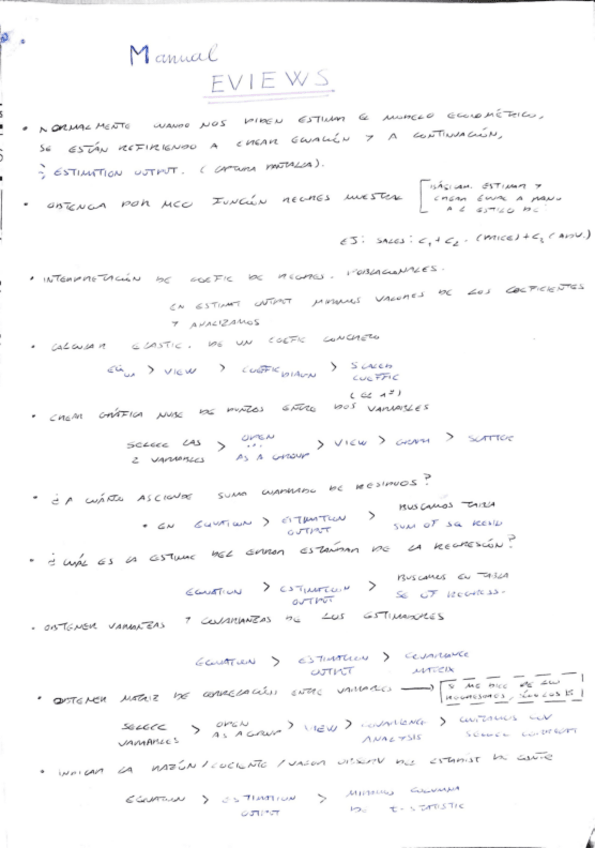 Manual
EVIEWS
• NORMALMENTE CUANDO NOS PIDEN ESTIMAR EL MODELO ECONOMÉTRICO,
SE ESTÁN REFIRIENDO A CREAR ECUACIÓN Y A CONTINUACIÓN,
ESTIMATION OUTPUT. (CAPTURA PANTALLA).
• OBTENGA POR MCO FUNCIÓN REGRES MUESTRAL [BÁSICAM. ESTIMAR Y
CREAR ECUAC A MANO
A L ESTILO DE:
EJ: SALES: C1 + C2 · (PRICE) + C3 (ADV.)
• INTERPRETACIÓN DE COEFIC DE REGRES. POBLACIONALES.
EN ESTIMAT OUTPUT MIRAMOS VALORES DE LOS COEFICIENTES
Y ANALIZAMOS
• CALCULAR ELASTIC. DE UN COEFIC CONCRETO
> VIEW > COEFIC DIAGN > SCALED
COEFFIC
(EL 1º)
• CREAR GRÁFICA NUBE DE PUNTOS ENTRE DOS VARIABLES
SELECC LAS > OPEN ... > VIEW > GRAPH > SCATTER
2 VARIABLES AS A GROUP
• ¿A CUÁNTO ASCIENDE SUMA CUADRADO DE RESIDUOS?
• EN EQUATION > ESTIMATION > BUSCAMOS TABLA
OUTPUT SUM OF SQ RESID
• ¿CUÁL ES LA ESTIMAC DEL ERROR ESTÁNDAR DE LA REGRESIÓN?
EQUATION > ESTIMATION > BUSCAMOS EN TABLA
OUTPUT SE OF REGRESS.
• OBTENER VARIANZAS Y COVARIANZAS DE LOS ESTIMADORES
EQUATION > ESTIMATION > COVARIANCE
OUTPUT MATRIX
• OBTENER MATRIZ DE CORRELACIÓN ENTRE VARIABLES → SI ME DICE DE LOS
REGRESORES, SON LOS
SELECC > OPEN > VIEW > COVARIANCE >
VARIABLES AS A GROUP ANALYSIS
• INDICAR LA RAZÓN / COCIENTE / VALOR OBSERV DEL ESTADIST DE CONTE
EQUATION > ESTIMATION > MIRAMOS COLUMNA
OUTPUT DE T-STATISTIC